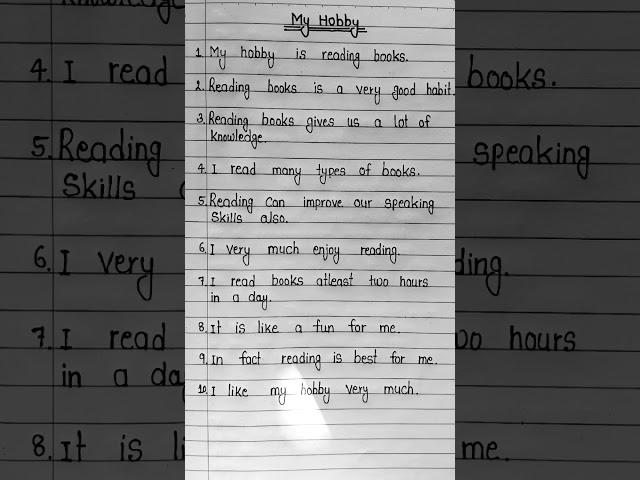 My Hobby
1. My hobby is reading books.
2. Reading books is a very good habit.
3. Reading books gives us a lot of
knowledge.
4. I read many types of books.
5. Reading can improve our speaking
skills also.
6. I very much enjoy reading.
7. I read books atleast two hours
in a day.
8. It is like a fun for me.
9. In fact reading is best for me.
10. I like my hobby very much.